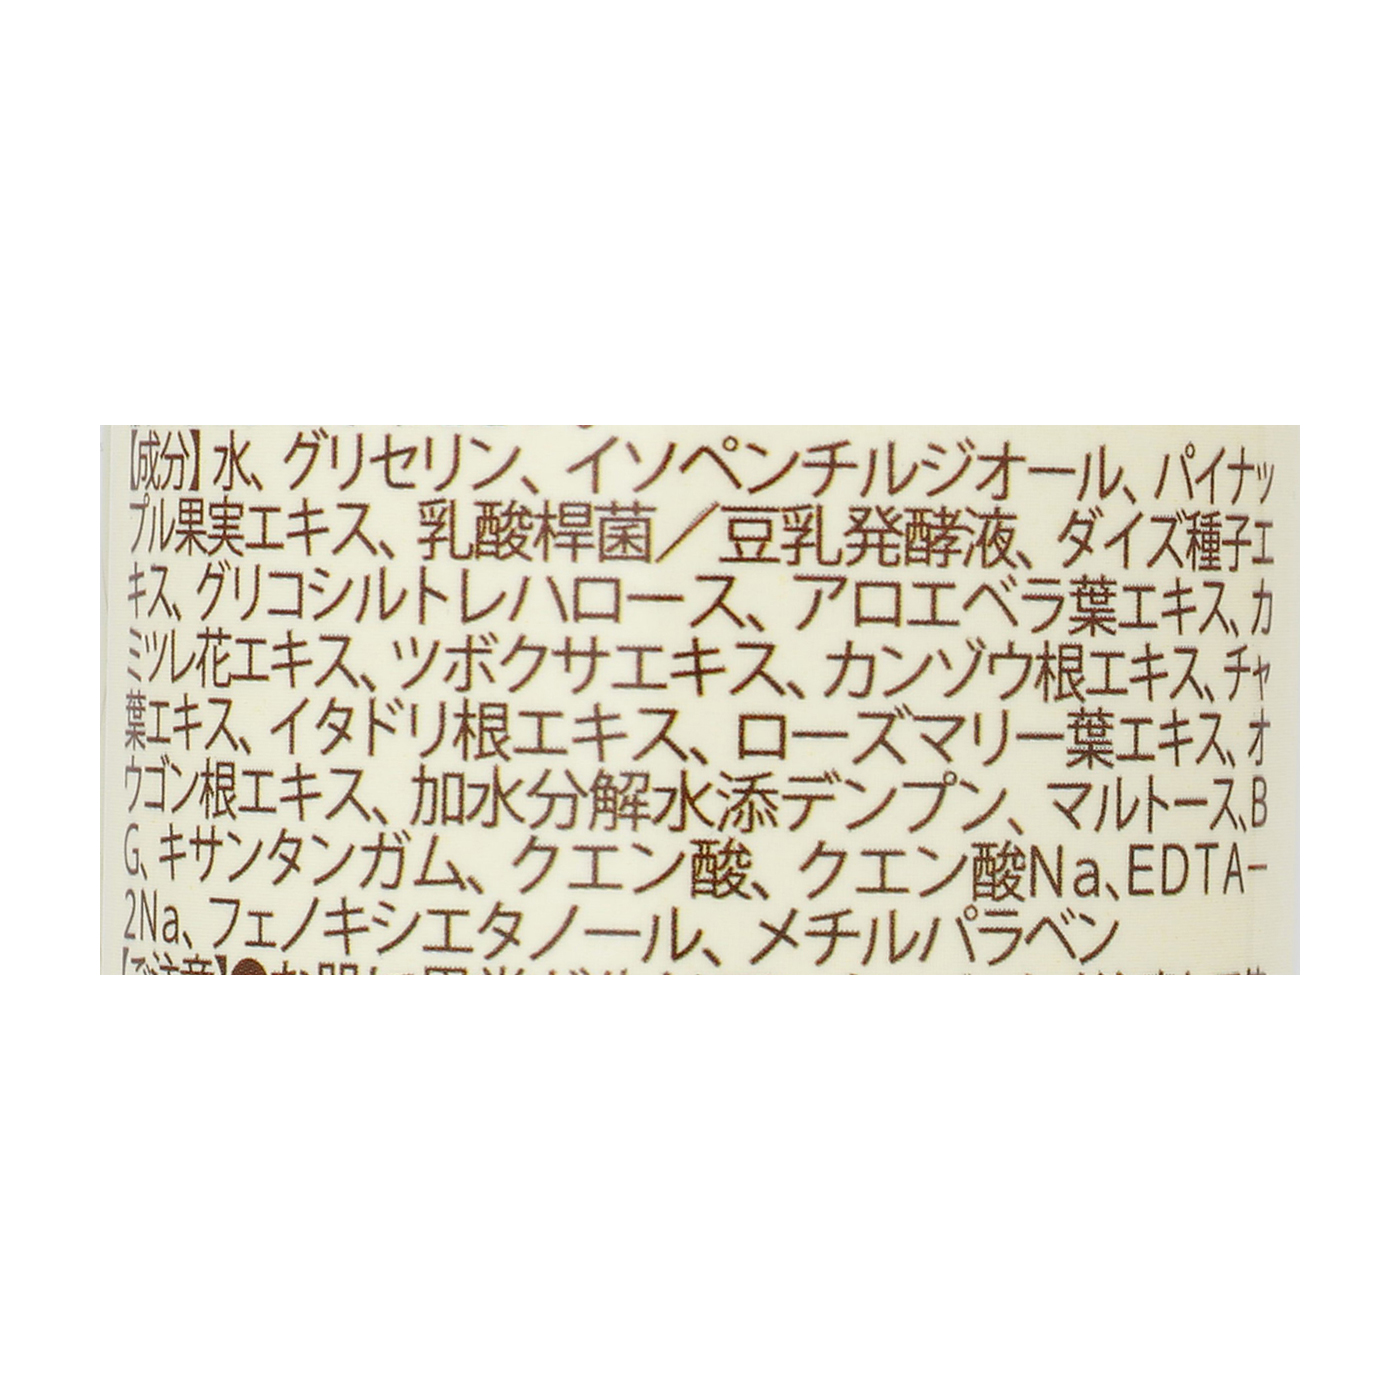 【成分】水、グリセリン、イソペンチルジオール、パイナッ
プル果実エキス、乳酸桿菌／豆乳発酵液、ダイズ種子エ
キス、グリコシルトレハロース、アロエベラ葉エキス、カ
ミツレ花エキス、ツボクサエキス、カンゾウ根エキス、チャ
葉エキス、イタドリ根エキス、ローズマリー葉エキス、オ
ウゴン根エキス、加水分解水添デンプン、マルトース、B
G、キサンタンガム、クエン酸、クエン酸Na、EDTA-
2Na、フェノキシエタノール、メチルパラベン
【ご注意】●